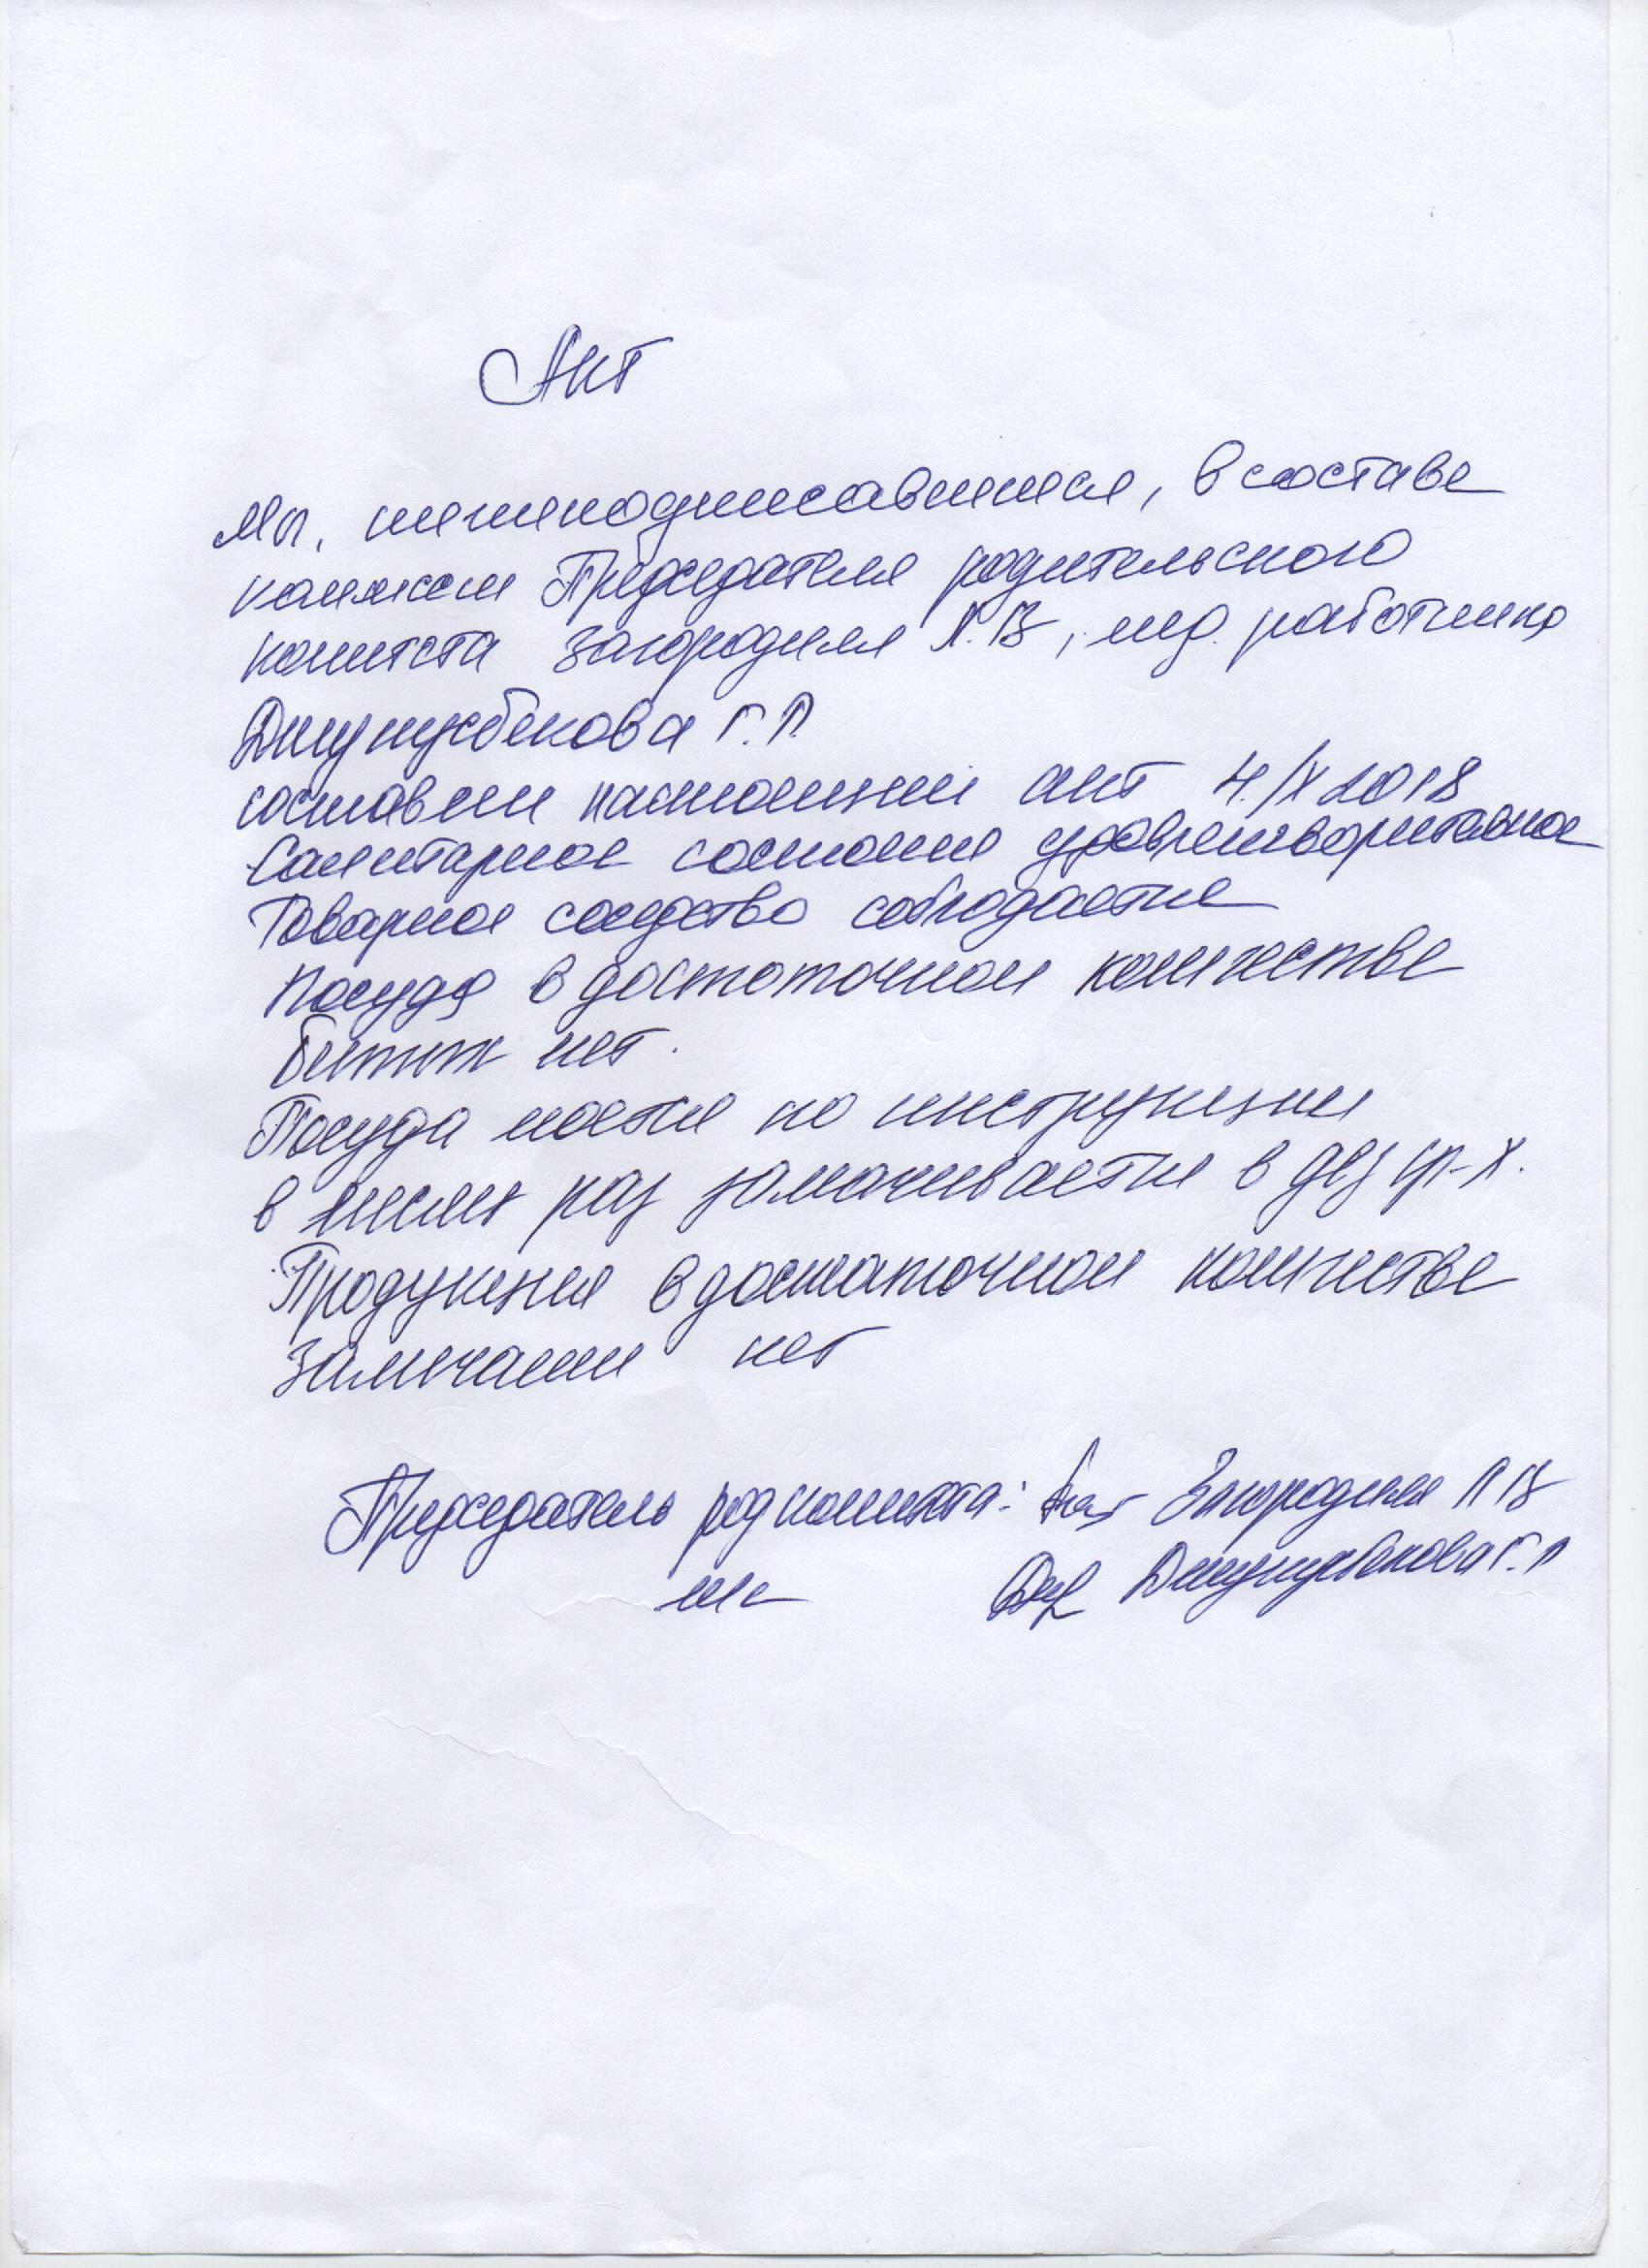 Акт
Мы, нижеподписавшиеся, в составе
комиссии Председателя родительского
комитета Загородняя Л.В, мед. работника
Джунужбекова Г.П.
составили настоящий акт 4.IX 2018
Санитарное состояние удовлетворительное
Товарное соседство соблюдается
Посуда в достаточном количестве
битых нет.
Посуда моется по инструкции
в месяц раз замачивается в дез ср-х.
Продукция в достаточном количестве
Замечании нет
Председатель род комитета: Загородняя Л В
м/с Джунужбекова Г. П